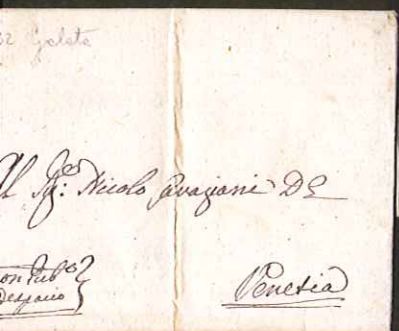 Galata
Al Sig.r Nicolo Cavazani DE
Con Pub.co
Despacio
Venetia